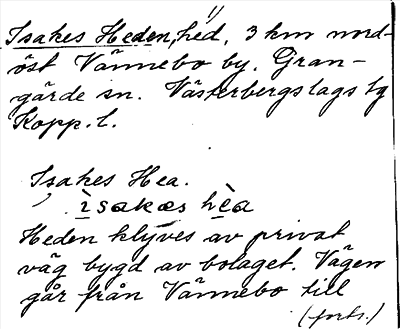 Isakes Heden, hed, 3 km nord-
öst Vännebo by. Gran-
gärde sn. Västerbergslags tg
Kopp. l.
Isakes Hea.
ìsakæs hèa
Heden klyves av privat
väg bygd av bolaget. Vägen
går från Vännebo till
(forts.)